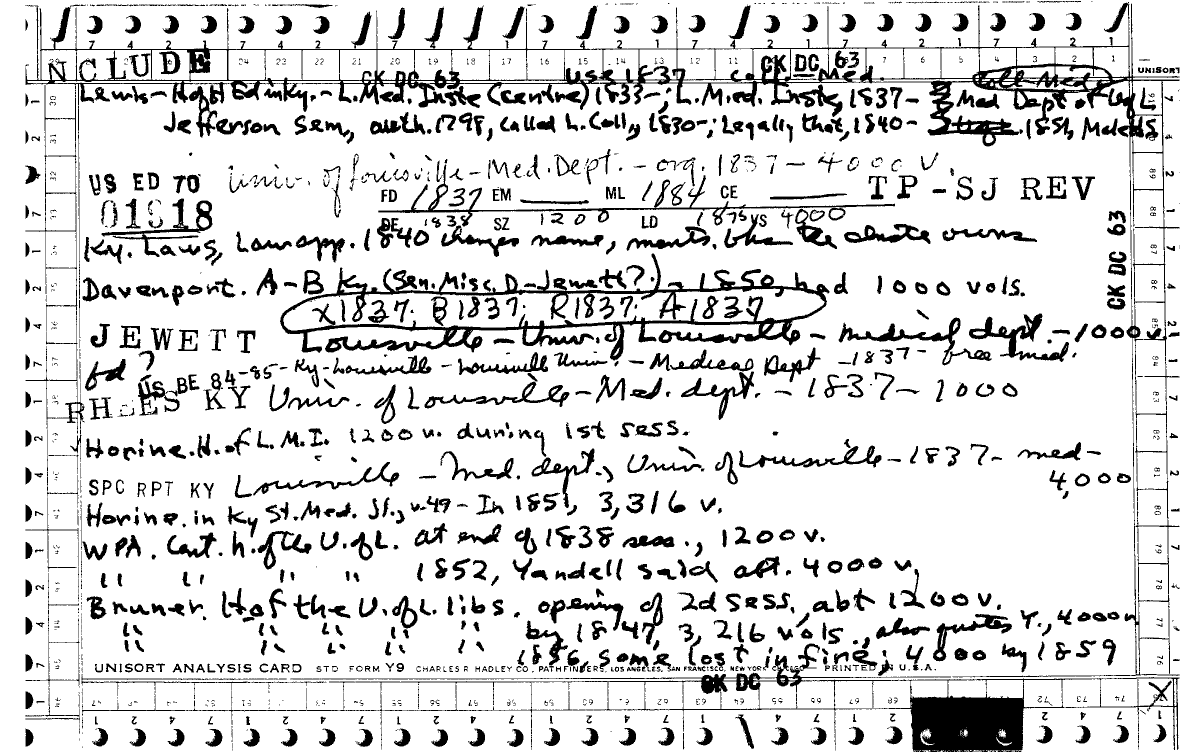 NCLUDE
CK DC 63 Use 1837 Coll. Med. CK DC 63 Coll Med
UNISORT
Lewis - H of H Ed in Ky. - L. Med. Inste (Centre) 1833-; L. Med. Inste, 1837- Med Dept of U of L,
Jefferson Sem, auth. 1798, called L. Coll, 1830-; Legally that, 1840- 1851,
Univ. of Louisville - Med. Dept. - org. 1837 - 4000 V
US ED 70
FD 1837 EM ML 1884 CE TP-SJ REV
01918
DE 1838 SZ 1200 LD 1875 VS 4000
Ky. Laws, Law app. 1840 changes name, owns
CK DC 63
Davenport. A-B Ky. (Sen. Misc. D - Jewett?) - 1850, had 1000 vols.
X1837; B1837; R1837; A1837
JEWETT Louisville - Univ. of Louisville - medical dept. - 1000 v.
fd?
US BE 84-85 - Ky - Louisville - Louisville Univ. - Medical Dept - 1837 - free - med.
RHEES KY Univ. of Louisville - Med. dept. - 1837 - 1000
Horine. H. of L.M.I. 1200 v. during 1st sess.
SPC RPT KY Louisville - Med. dept., Univ. of Louisville - 1837 - med - 4,000
Horine. in Ky St. Med. Jl., v.49 - In 1851, 3,316 v.
WPA. Cent. h. of the U. of L. at end of 1838 sess., 1200 v.
" " " " 1852, Yandell said abt. 4000 v.
Bruner. H of the U. of L. libs. opening of 2d sess., abt 1200 v.
" " " " " by 1847, 3,216 vols., also quotes Y., 4000 v
1856, some lost in fire; 4000 by 1859
UNISORT ANALYSIS CARD STD FORM Y9 CHARLES R HADLEY CO., PATHFINDERS, LOS ANGELES, SAN FRANCISCO, NEW YORK, CHICAGO - PRINTED IN U.S.A.
CK DC 63